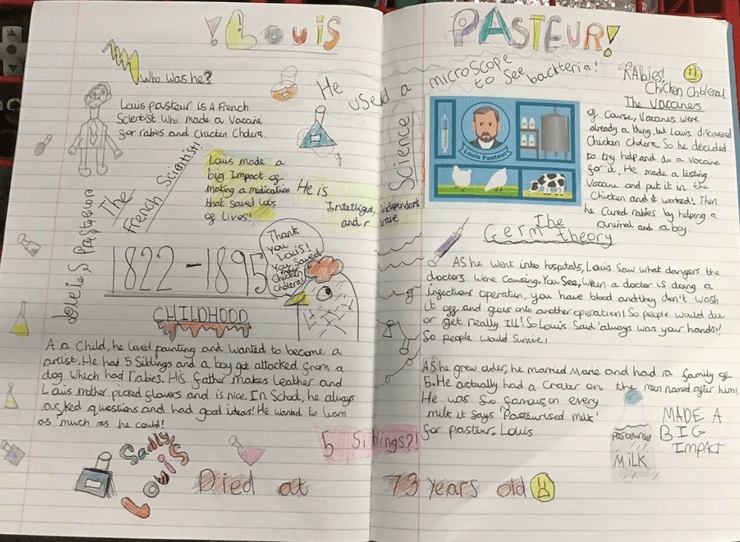 !Louis
PASTEUR!
who was he?
Louis pasteur is A French
Scientist Who made a Vacane
for rabies and Chicken Cholera.
The
French Scientist!
Louis made a
big Impact of
making a medication
that saved lots
of lives!
He used a microscope
to see backteria!
He is
Intelligent, independant
and brave
Science
1822 - 1895
Thank
you
Louis!
You saved
from
Chicken
Cholera!
CHILDHOOD
A a Child, he loved painting and wanted to become a
artist. He had 5 Siblings and a boy got attacked from a
dog which had rabies. His father makes leather and
Louis mother picked gloves and is nice. In School, he always
asked questions and had good ideas! He wanted to learn
as much as he could!
5 Siblings?!
Sadly,
Louis
Died at 73 years old
Rabies!
Chicken Cholera!
The Vaccaners
Of Course, Vacanes were
already a thing, but Louis discovered
Chicken Cholera. So he decided
to try help and do a Vacane
for it. He made a
Vacane and put it in the
Chicken and it worked! Then
he Cured rabies by helping a
animal and a boy
Louis Pasteur
The
Germ theory
As he went into hospitals, Louis Saw what dangers the
doctors Were Causing. You See, When a docter is doing a
ingections operation, you have blood and they don't Wash
it off and goes onto another operation! So people would die
or get really Ill! So Louis Said 'always was your hands!'
So people would Survive!
As he grew older, he married Marie and had a family of
5. He actually had a Crater on the moon named after him!
He was So famous on every
milk it Says 'Pasteurised milk'
for pasteur. Louis
Pasteurised
MiLK
MADE A
BIG
IMPACT